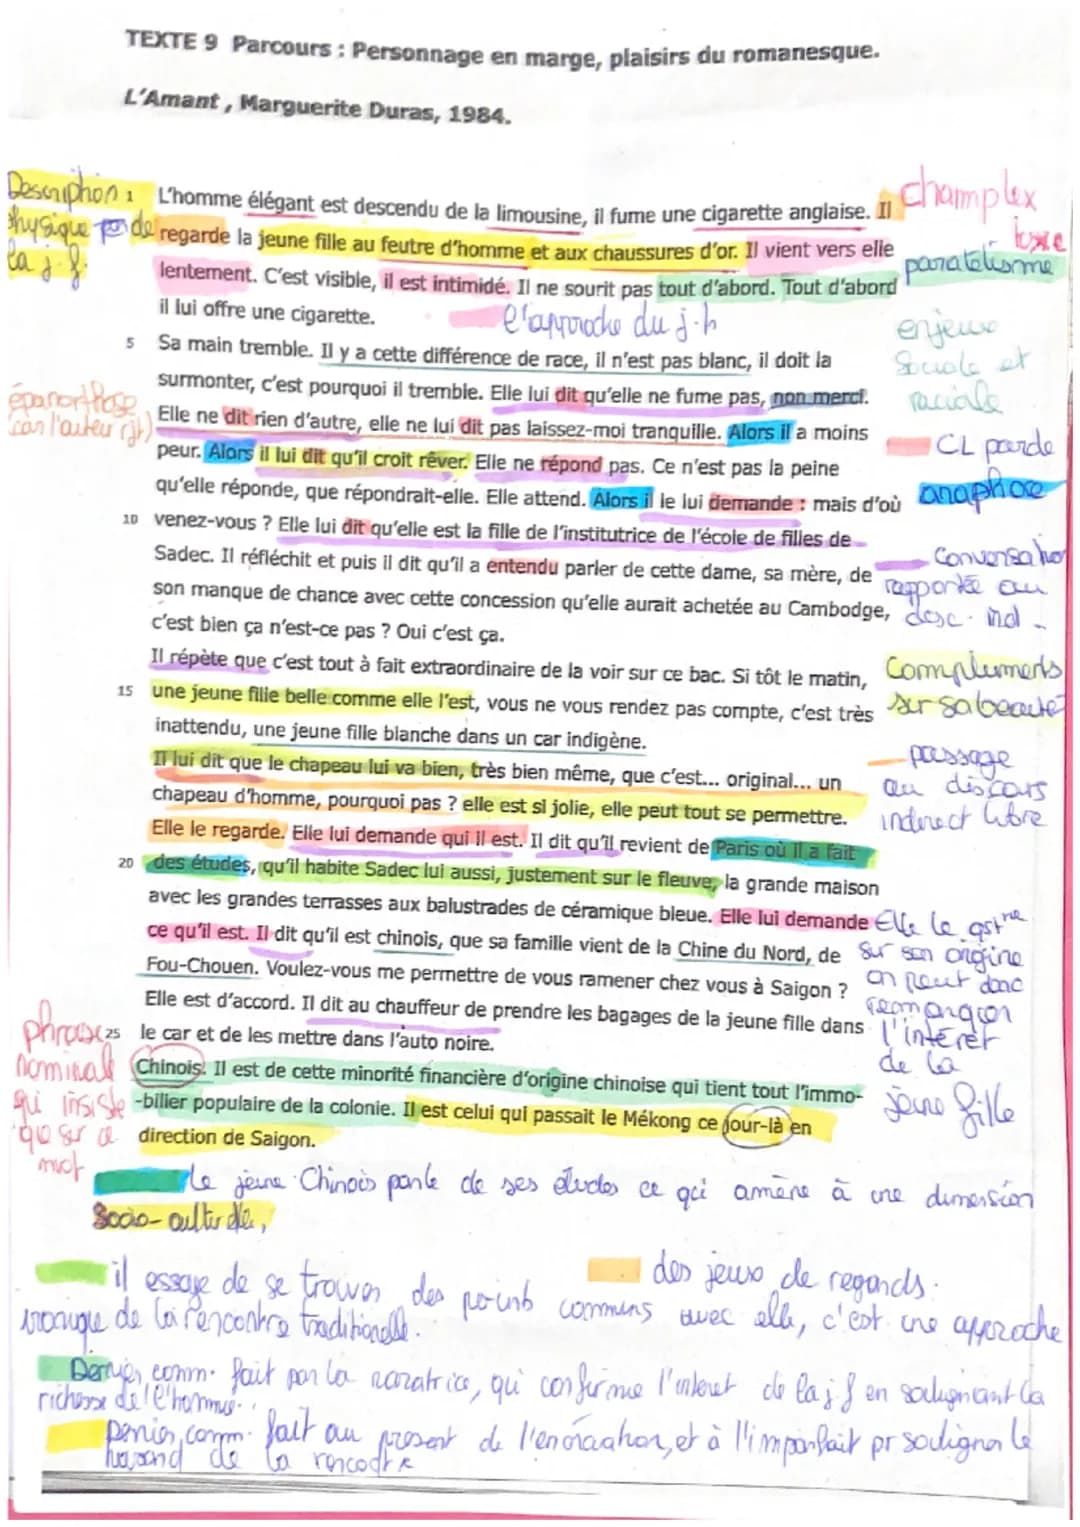 TEXTE 9 Parcours : Personnage en marge, plaisirs du romanesque.
L'Amant , Marguerite Duras, 1984.
Description
physique de
la j.f.
1 L'homme élégant est descendu de la limousine, il fume une cigarette anglaise. Il
champ lex
luxe
regarde la jeune fille au feutre d'homme et aux chaussures d'or. Il vient vers elle
parallélisme
lentement. C'est visible, il est intimidé. Il ne sourit pas tout d'abord. Tout d'abord
il lui offre une cigarette.
l'approche du j.h
enjeux
sociale et
raciale
5 Sa main tremble. Il y a cette différence de race, il n'est pas blanc, il doit la
surmonter, c'est pourquoi il tremble. Elle lui dit qu'elle ne fume pas, non merci.
épanorthose
Elle ne dit rien d'autre, elle ne lui dit pas laissez-moi tranquille. Alors il a moins
CL parole
peur. Alors il lui dit qu'il croit rêver. Elle ne répond pas. Ce n'est pas la peine
anaphore
qu'elle réponde, que répondrait-elle. Elle attend. Alors il le lui demande : mais d'où
10 venez-vous ? Elle lui dit qu'elle est la fille de l'institutrice de l'école de filles de
Conversation
rapportée au
disc. ind.
Sadec. Il réfléchit et puis il dit qu'il a entendu parler de cette dame, sa mère, de
son manque de chance avec cette concession qu'elle aurait achetée au Cambodge,
c'est bien ça n'est-ce pas ? Oui c'est ça.
Il répète que c'est tout à fait extraordinaire de la voir sur ce bac. Si tôt le matin,
Compliments
sur sa beauté
15 une jeune fille belle comme elle l'est, vous ne vous rendez pas compte, c'est très
inattendu, une jeune fille blanche dans un car indigène.
passage
au discours
indirect libre
Il lui dit que le chapeau lui va bien, très bien même, que c'est... original... un
chapeau d'homme, pourquoi pas ? elle est si jolie, elle peut tout se permettre.
Elle le regarde. Elle lui demande qui il est. Il dit qu'il revient de Paris où il a fait
20 des études, qu'il habite Sadec lui aussi, justement sur le fleuve, la grande maison
avec les grandes terrasses aux balustrades de céramique bleue. Elle lui demande
Elle le qstne
sur son origine
on peut donc
remarquer
l'intérêt
de la
jeune fille
ce qu'il est. Il dit qu'il est chinois, que sa famille vient de la Chine du Nord, de
Fou-Chouen. Voulez-vous me permettre de vous ramener chez vous à Saigon ?
Elle est d'accord. Il dit au chauffeur de prendre les bagages de la jeune fille dans
25 le car et de les mettre dans l'auto noire.
phrase
nominal
qui insiste
que sur ce
mot
Chinois. Il est de cette minorité financière d'origine chinoise qui tient tout l'immo-
-bilier populaire de la colonie. Il est celui qui passait le Mékong ce jour-là en
direction de Saigon.
Le jeune Chinois parle de ses études ce qui amène à une dimension
Socio-culturelle,
il essaye de se trouver des points communs avec elle, c'est une approche
des jeux de regards.
ironique de la rencontre traditionelle.
Dernier comm. fait par la narratrice, qui confirme l'interet de la j.f en soulignant la
richesse de l'homme.
Dernier comm. fait au present de l'enonciation, et à l'imparfait pr souligner le
hasard de la rencontre